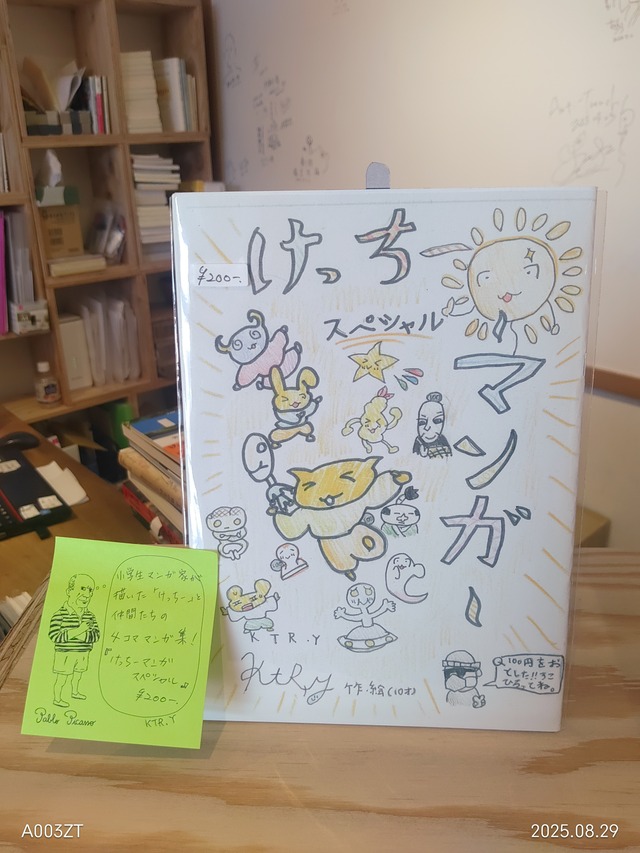 ¥200-.
けっちー
スペシャル
マンガ
KTR.Y
KtRy
作・絵(10才)
100円を
ひろってね。
小学生マンガ家が
描いた「けっちー」と
仲間たちの
4コママンガ集！
『けっちーマンガ
スペシャル』
¥200-.
Pablo Picasso
KTR.Y
A003ZT
2025.08.29